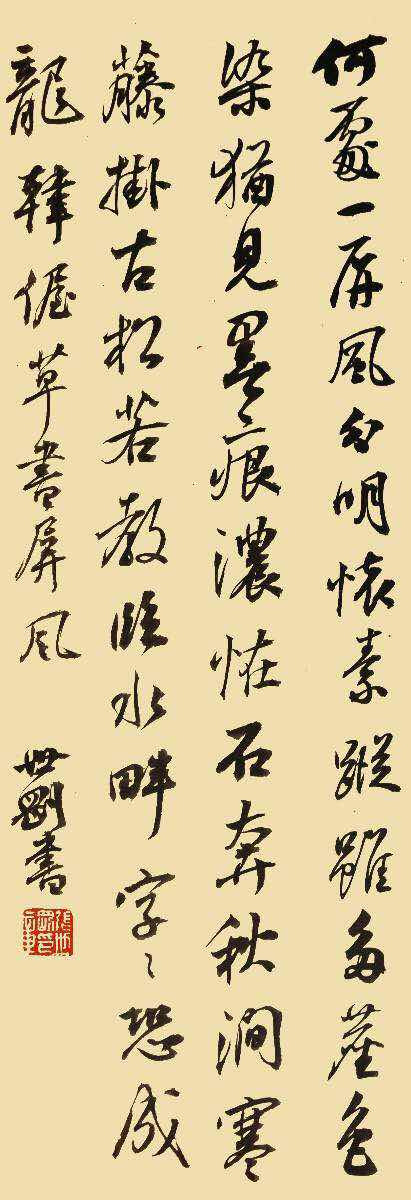 何處一屏風分明懷素蹤雖多塵色
染猶見墨痕濃怪石奔秋澗寒
藤掛古松若教臨水畔字〻恐成
龍韓偓草書屏風
世剛書